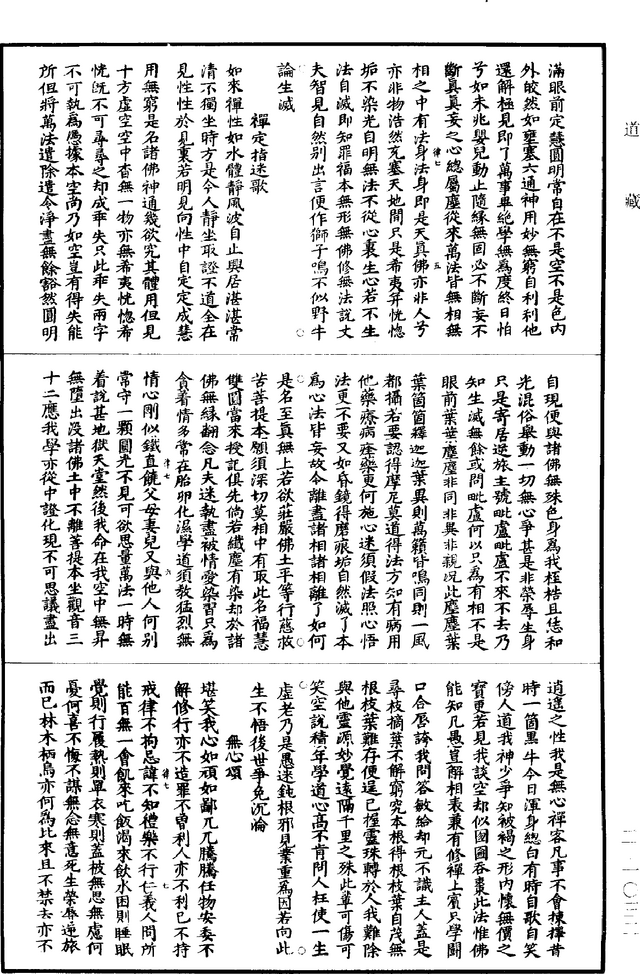 道藏
滿眼前定慧圓明常自在不是空不是色內
外皎然如壅塞六通神用妙無窮自利利他
還解極見即了萬事畢絕學無爲度終日怕
兮如未兆嬰兒動止隨緣無固必不斷妄不
斷真真妄之心總屬塵從來萬法皆無相無
相之中有法身法身即是天真佛亦非人兮
亦非物浩然充塞天地間只是希夷幷恍惚
垢不染光自明無法不從心裏生心若不生
法自滅即知罪福本無形無佛修無法說丈
夫智見自然別出言便作獅子鳴不似野牛
論生滅
禪定指迷歌
如來禪性如水體靜風波自止興居湛湛常
清不獨坐時方是今人靜坐取證不道全在
見性性於見裏若明見向性中自定定成慧
用無窮是名諸佛神通幾欲究其體用但見
十方虛空空中杳無一物亦無希夷恍惚希
恍旣不可尋尋之却成乖失只此乖失兩字
不可執爲憑據本空尚乃如空豈有得失能
所但將萬法遣除遣令淨盡無餘豁然圓明
自現便與諸佛無殊色身爲我桎梏且恁和
光混俗舉動一切無心爭甚是非榮辱生身
只是寄居逆旅主號毗盧毗盧不來不去乃
知生滅無餘或問毗盧何以只爲有相不是
眼前葉葉塵塵非同非異非親況此塵塵葉
葉箇箇釋迦迦葉異則萬籟皆鳴同則一風
都攝若要認得摩尼莫道得法方知有病用
他藥療病瘥藥更何施心迷須假法照心悟
法更不要又如昏鏡得磨痕垢自然滅了本
爲心法皆妄故令離盡諸相諸相離了如何
是名至真無上若欲莊嚴佛土平等行慈救
苦菩提本願須深切莫相中有取此名福慧
雙圓當來授記俱先倘若纖塵有染却於諸
佛無緣翻念凡夫迷執盡被情愛染習只爲
貪着情多常在胎卵化濕學道須教猛烈無
情心剛似鐵直饒父母妻兒又與他人何別
常守一顆圓光不見可欲思量萬法一時無
着說甚地獄天堂然後我命在我空中無昇
無墮出沒諸佛土中不離菩提本坐觀音三
十二應我學亦從中證化現不可思議盡出
逍遙之性我是無心禪客凡事不會揀擇昔
時一箇黑牛今日渾身總白有時自歌自笑
傍人道我神少爭知被褐之形內懷無價之
寶更若見我談空却似囫圇吞棗此法惟佛
能知凡愚豈解相表兼有修禪上賓只學鬬
口合脣誇我問荅敏給却元不識主人蓋是
尋枝摘葉不解窮究本根得根枝葉自茂無
根枝葉難存便逞已握靈珠轉於人我難除
與他靈源妙覺遠隔千里之殊此輩可傷可
笑空說積年學道心高不肯問人枉使一生
虛老乃是愚迷鈍根邪見業重爲因若向此
生不悟後世爭免沉淪
無心頌
堪笑我心如頑如鄙兀兀騰騰任物安委不
解修行亦不造罪不曾利人亦不利己不持
戒律不拘忌諱不知禮樂不行仁義人間所
能百無一會飢來喫飯渴來飲水困則睡眠
覺則行履熱則單衣寒則蓋被無思無慮何
憂何喜不悔不謀無念無意死生榮辱逆旅
而已林木栖鳥亦何爲比來且不禁去亦不